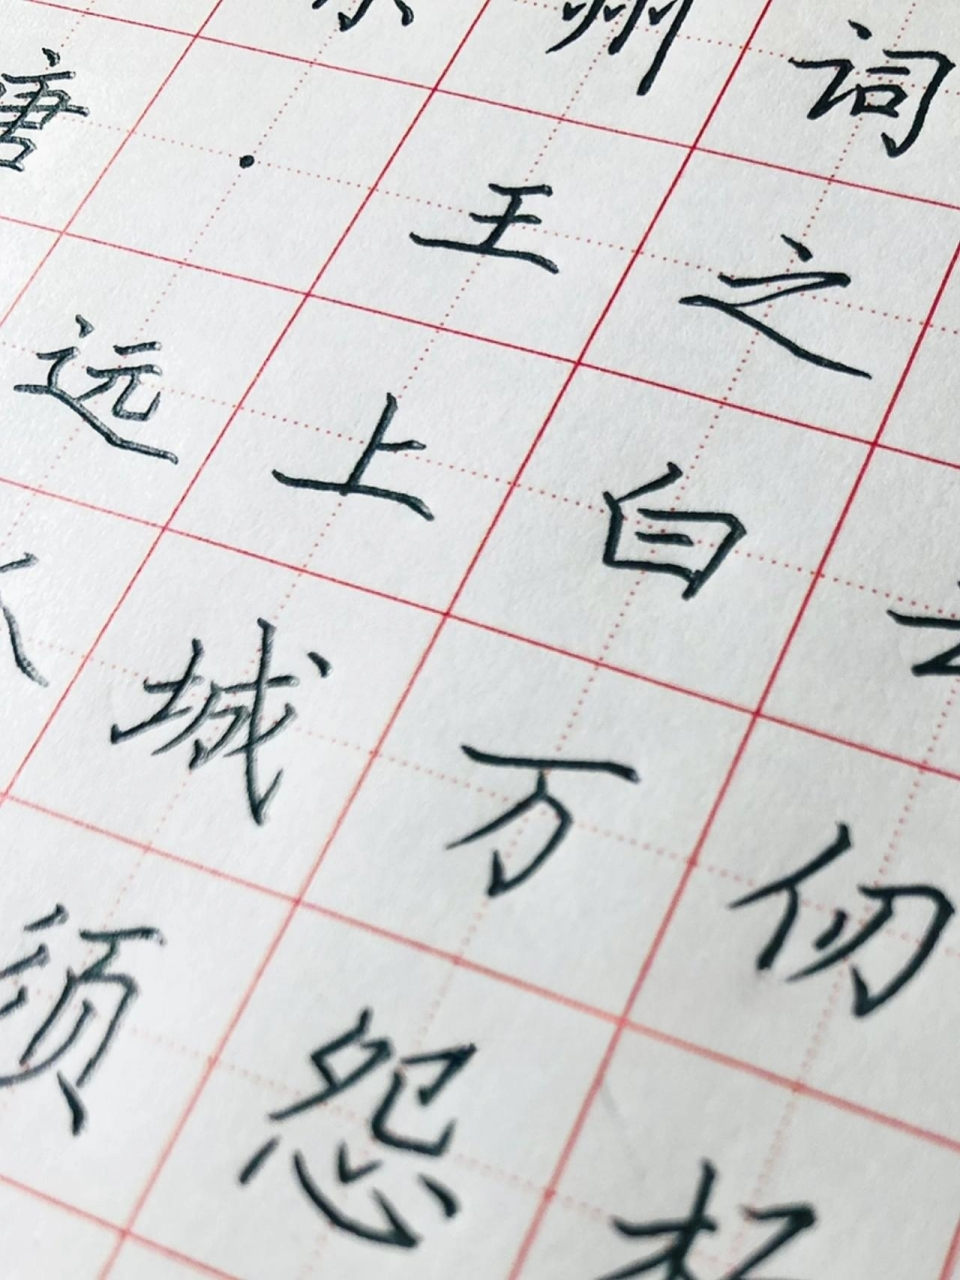 州词
唐·王之
远上白
城万仞
须怨杨